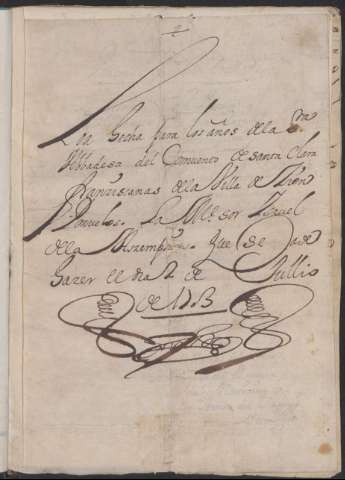 Loa hecha para los años de la Sra
Abbadesa del Convento de santa Clara
franziscanas de la Villa de
La Me Sor
de la Que se a de
hazer el dia 2 de Jullio
de 1713